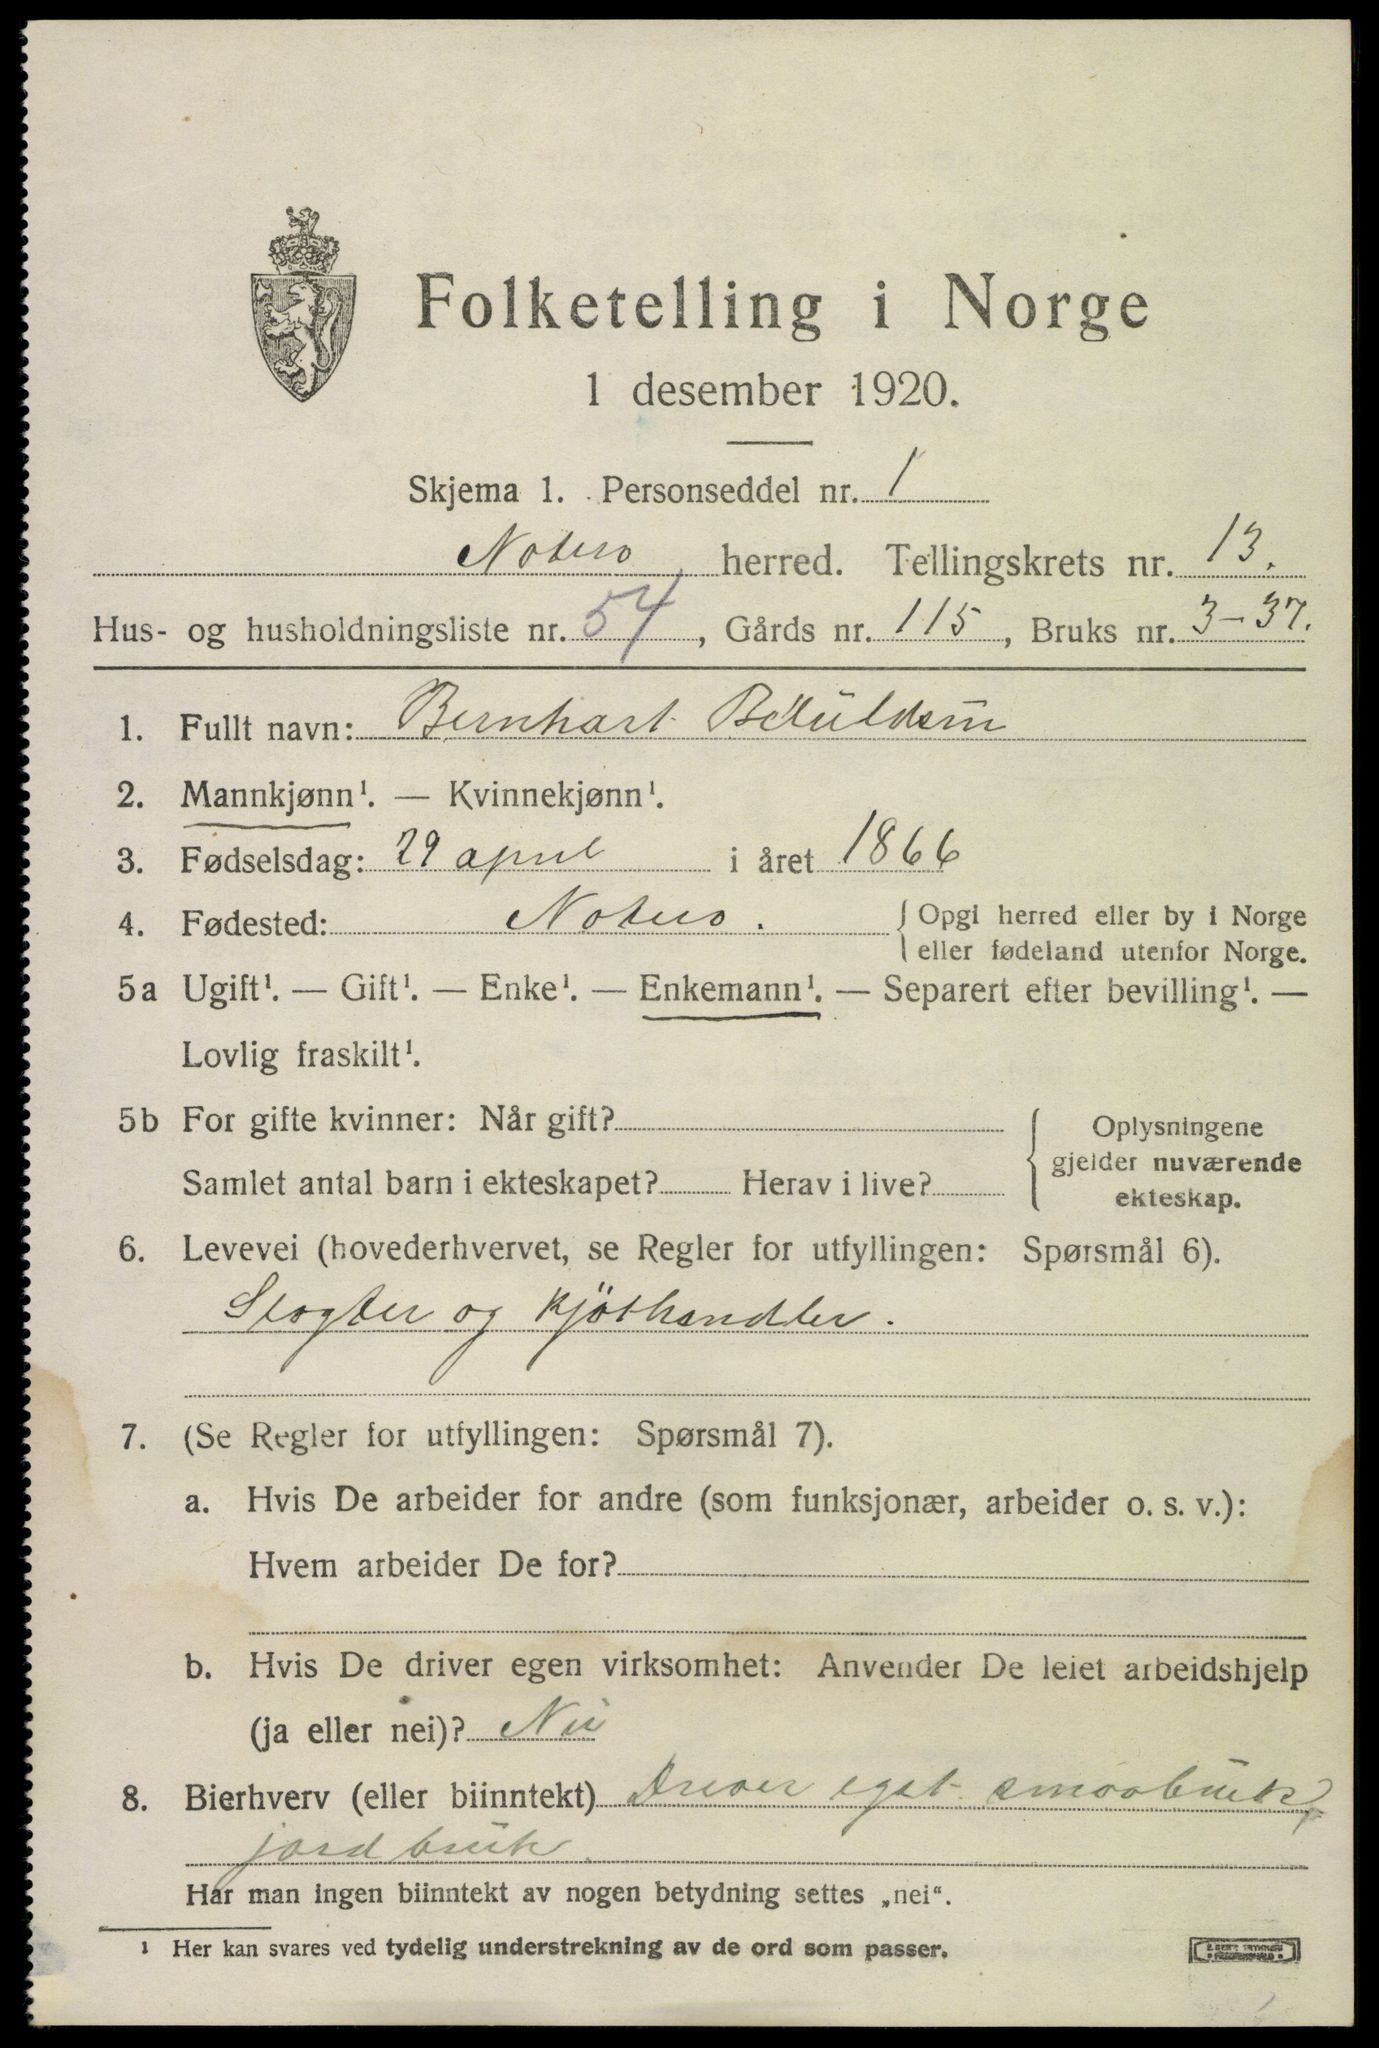 Folketelling i Norge
1 desember 1920.
Skjema 1. Personseddel nr. 1
Notero herred. Tellingskrets nr. 13.
Hus- og husholdningsliste nr. 54, Gårds nr. 115, Bruks nr. 3-37.
1. Fullt navn: Bernhart
2. Mannkjønn¹. — Kvinnekjønn¹.
3. Fødselsdag: 29 april i året 1866
4. Fødested: Notero. { Opgi herred eller by i Norge
eller fødeland utenfor Norge.
5a Ugift¹. — Gift¹. — Enke¹. — Enkemann¹. — Separert efter bevilling¹. —
Lovlig fraskilt¹.
5b For gifte kvinner: Når gift?
Samlet antal barn i ekteskapet? Herav i live?
Oplysningene
gjelder nuværende
ekteskap.
6. Levevei (hovederhvervet, se Regler for utfyllingen: Spørsmål 6).
Slogter og Kjöthandler.
7. (Se Regler for utfyllingen: Spørsmål 7).
a. Hvis De arbeider for andre (som funksjonær, arbeider o. s. v.):
Hvem arbeider De for?
b. Hvis De driver egen virksomhet: Anvender De leiet arbeidshjelp
(ja eller nei)? Nei
8. Bierhverv (eller biinntekt) Driver eget smaabruk,
jordbruk.
Har man ingen biinntekt av nogen betydning settes „nei“.
¹ Her kan svares ved tydelig understrekning av de ord som passer.